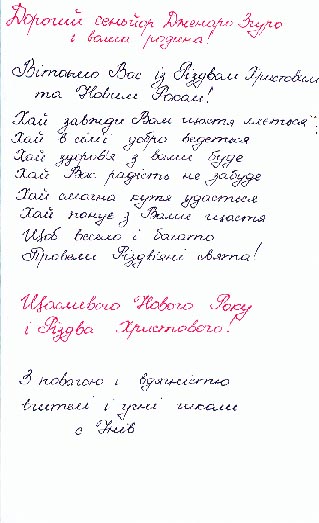 Дорогий сеньйор Дженаро Згуро
і ваша родина!
Вітаємо Вас із Різдвом Христовим
та Новим Роком!
Хай завжди Вам щастя ллється,
Хай в сім'ї добро ведеться
Хай здоров'я з вами буде
Хай Вас радість не забуде
Хай смачна кутя удасться
Хай панує з Вами щастя
Щоб весело і багато
Провели Різдвяні свята!
Щасливого Нового Року
і Різдва Христового!
З повагою і вдячністю
вчителі і учні школи
с